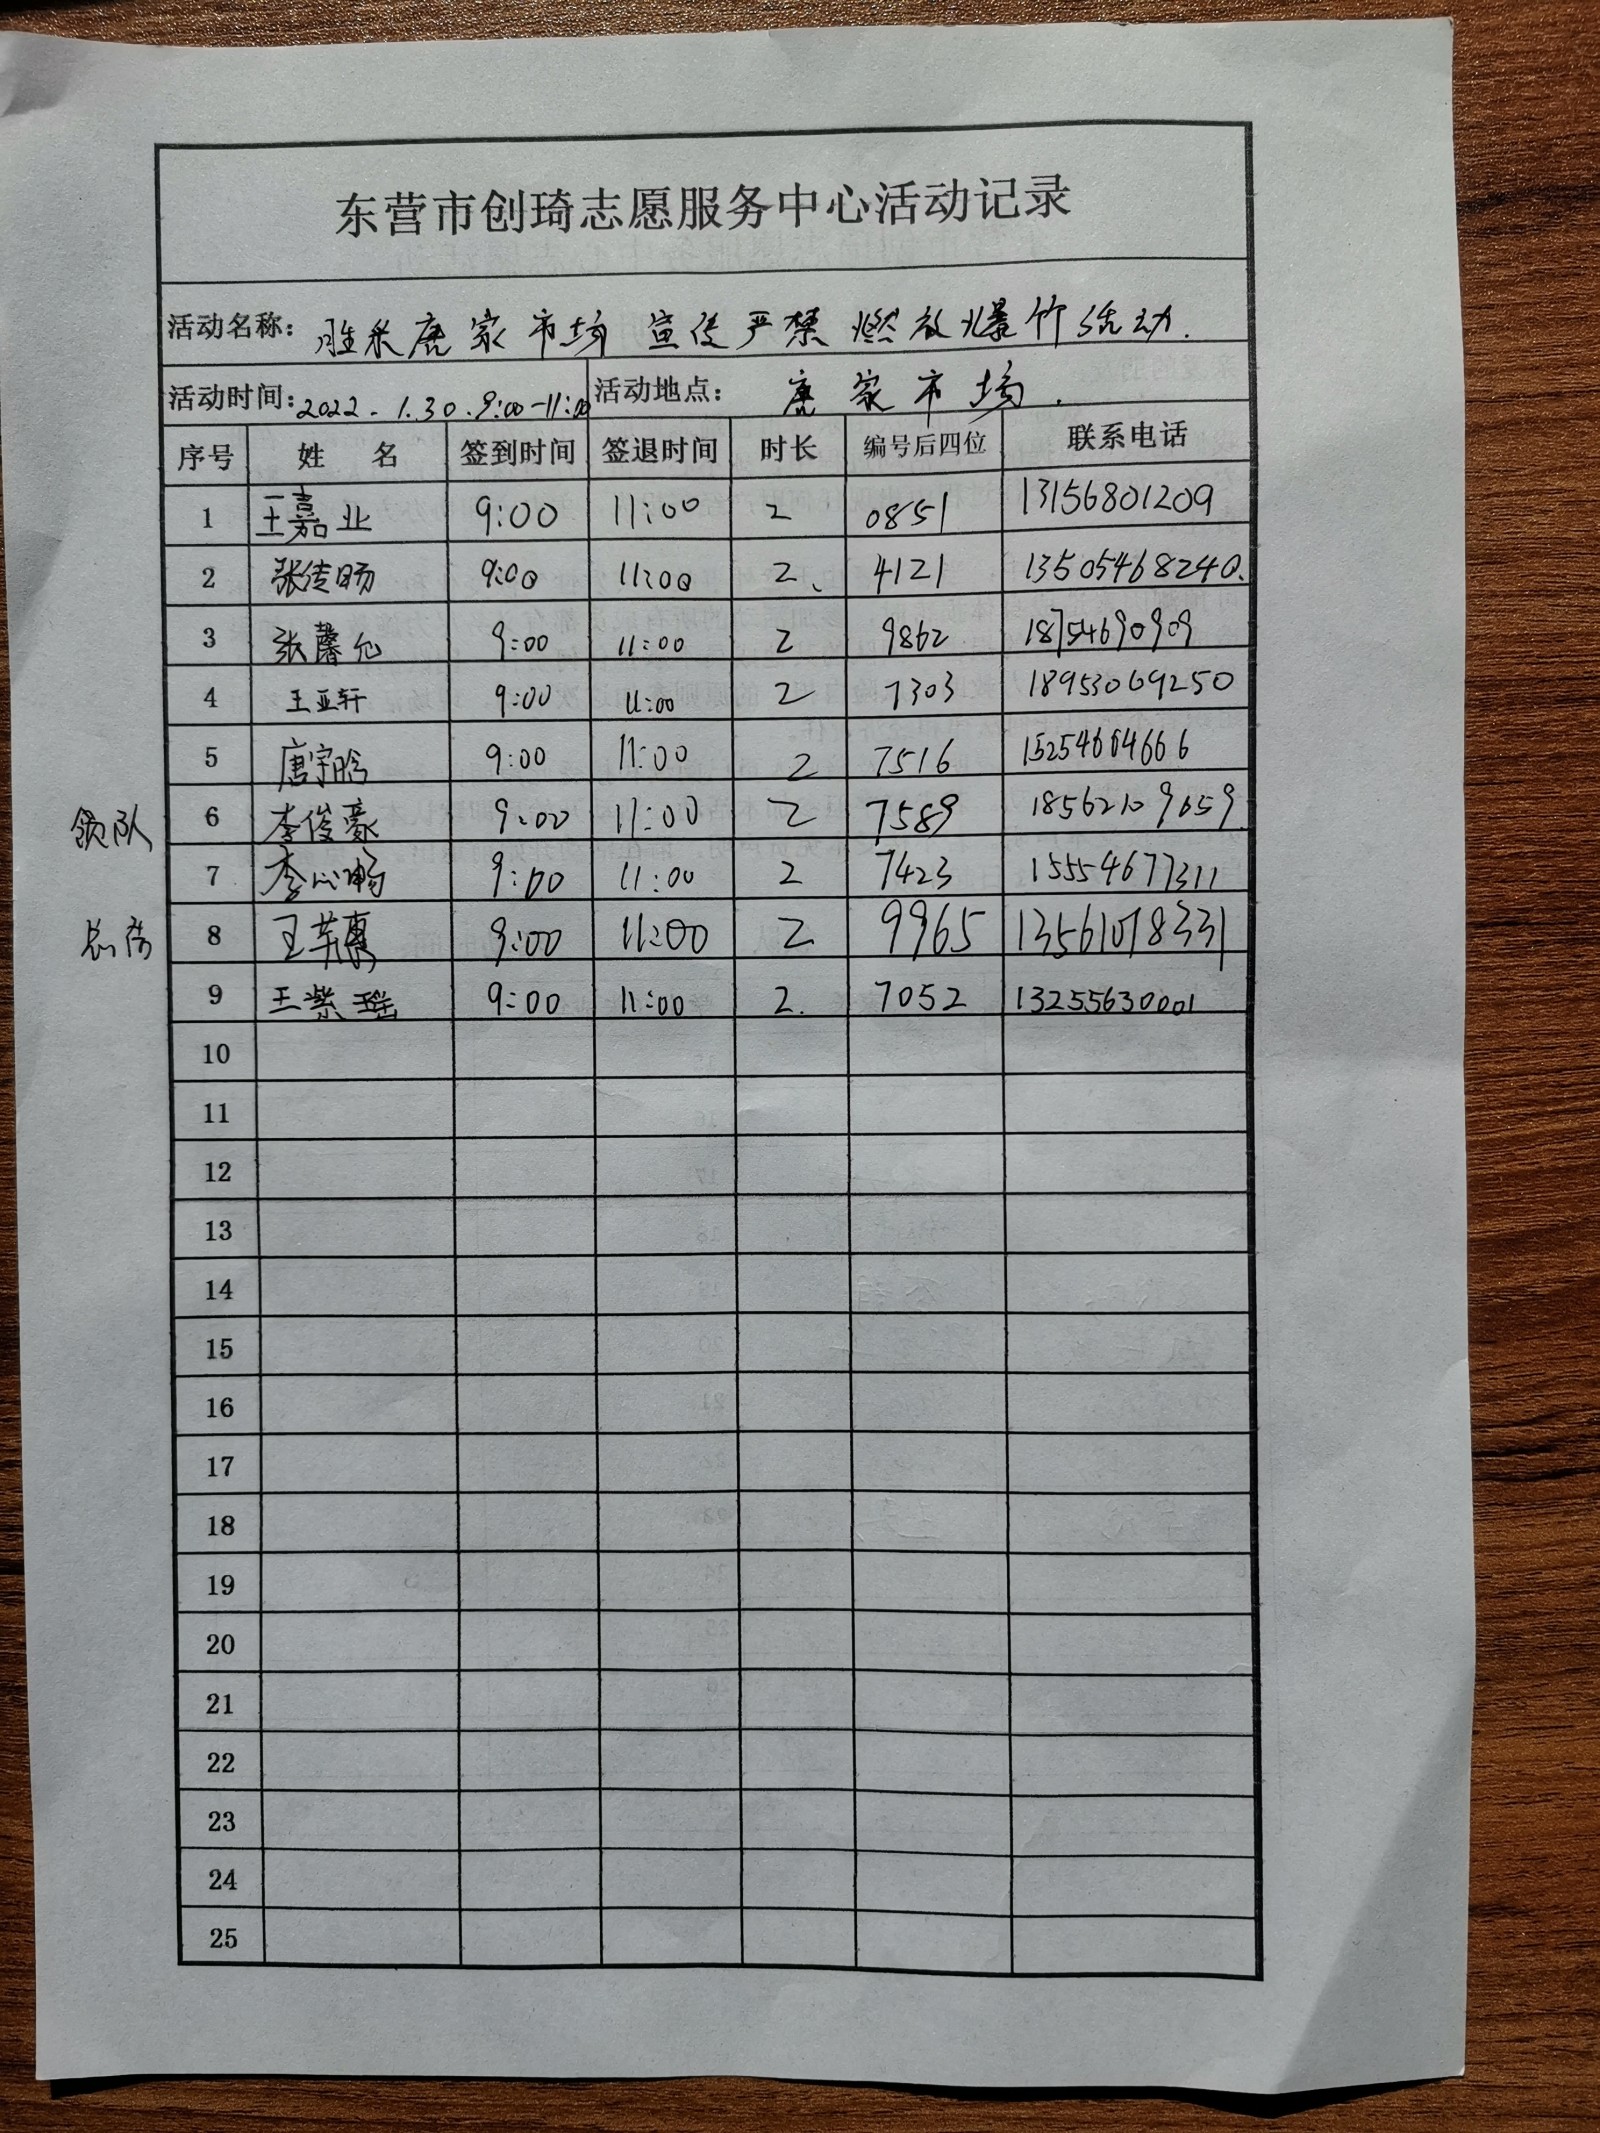 东营市创琦志愿服务中心活动记录
活动名称: 胜采唐家市场宣传严禁燃放爆竹活动.
活动时间: 2022.1.30.9:00-11:00 活动地点: 唐家市场.
序号 姓 名 签到时间 签退时间 时长 编号后四位 联系电话
1 王嘉业 9:00 11:00 2 0851 13156801209
2 张传旸 9:00 11:00 2. 4121 13505468240.
3 张馨允 9:00 11:00 2 9862 18754690909
4 王亚轩 9:00 11:00 2 7303 18953069250
5 唐宇晗 9:00 11:00 2 7516 15254664666
领队 6 李俊豪 9:00 11:00 2 7589 18562109659
7 李心畅 9:00 11:00 2 7423 15554677311
8 王 9:00 11:00 2 9965 13561078331
9 王紫瑶 9:00 11:00 2. 7052 13255630001
10
11
12
13
14
15
16
17
18
19
20
21
22
23
24
25